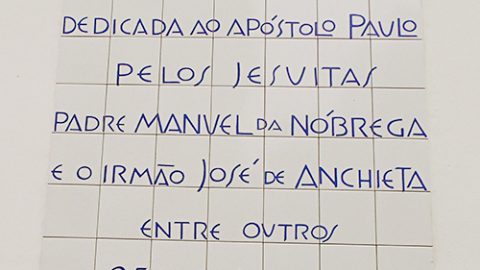 DEDICADA AO APÓSTOLO PAULO
PELOS JESUITAS
PADRE MANUEL DA NÓBREGA
E O IRMÃO JOSÉ DE ANCHIETA
ENTRE OUTROS